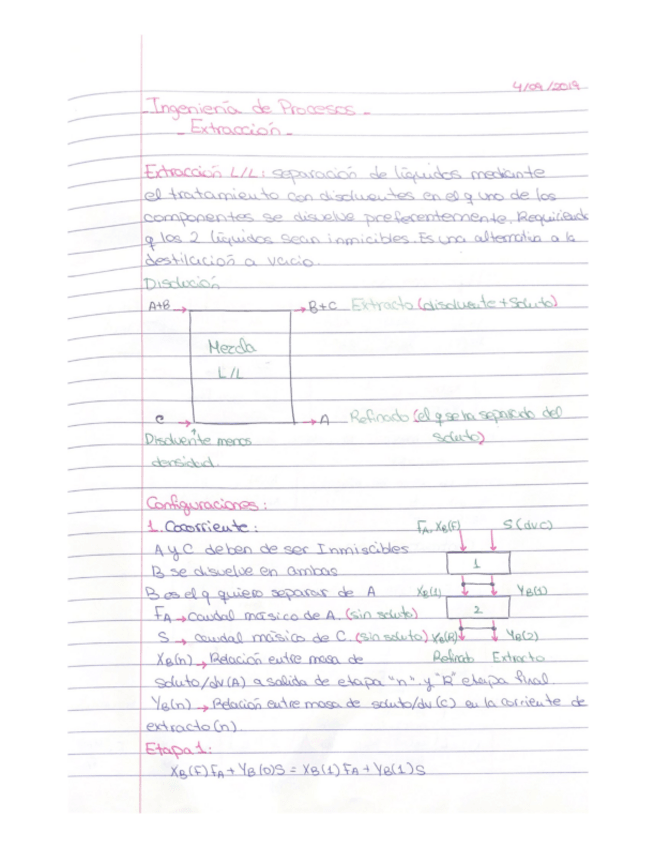 4/09/2019
- Ingeniería de Procesos -
- Extracción -
Extracción L/L: separación de líquidos mediante
el tratamiento con disolventes en el q uno de los
componentes se disuelve preferentemente. Requiriendo
q los 2 líquidos sean inmicibles. Es una alternativa a la
destilación a vacio.
Disolución
A+B → → B+C Extracto (disolvente + Soluto)
Mezcla
L/L
C → → A Refinado (el q se ha separado del
soluto)
Disolvente menos
densidad.
Configuraciones:
1. Cocorriente: FA, XB(F) S (dvC)
A y C deben de ser Inmiscibles
1
B se disuelve en ambas
B es el q quiero separar de A XB(1) YB(1)
2
FA → caudal másico de A. (sin soluto)
S → caudal másico de C. (sin soluto) XB(R) YB(2)
XB(n) → Relación entre masa de Refinado Extracto
soluto/dv(A) a salida de etapa "n" y "R" etapa final
YB(n) → Relación entre masa de soluto/dv(C) en la corriente de
extracto(n)
Etapa 1:
XB(F)FA + YB(0)S = XB(1)FA + YB(1)S